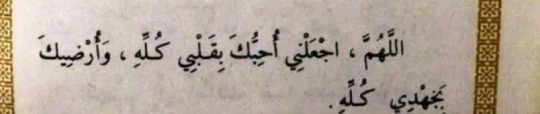 اللَّهُمَّ ، اجْعَلْنِي أُحِبُّكَ بِقَلْبِي كُلِّهِ ، وَأُرْضِيكَ
بِجَهْدِي كُلِّهِ .